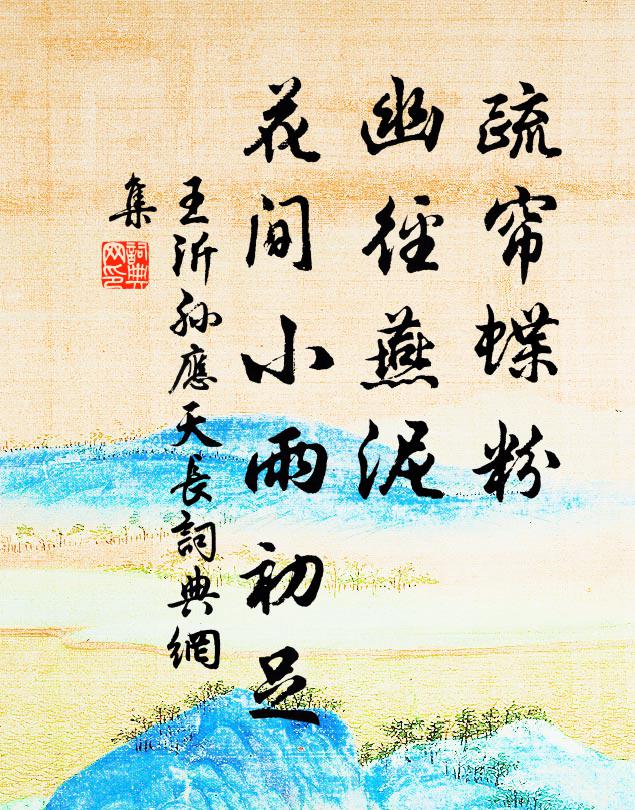 疏帘蝶粉
幽徑燕泥
花間小雨初足
王沂孫應天長詞典網
集
詞典
网印